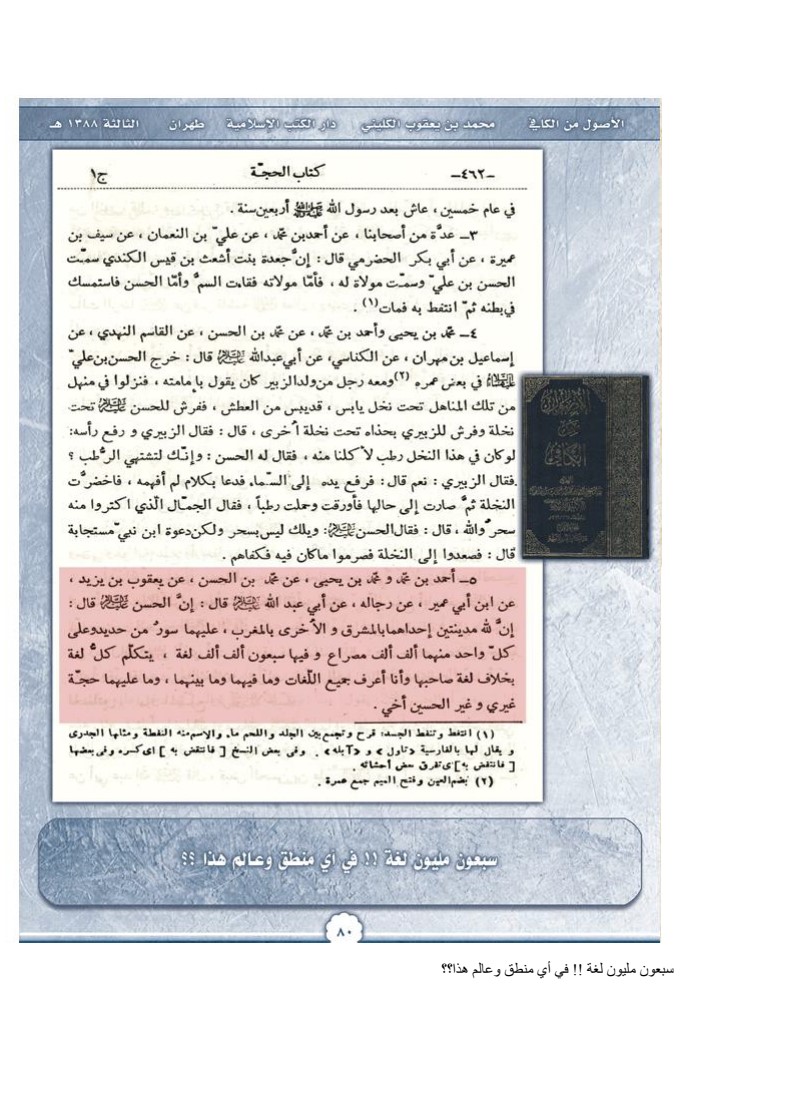 الأصول من الكافي محمد بن يعقوب الكليني دار الكتب الإسلامية طهران الثالثة ١٣٨٨ هـ
ـ٤٦٢ـ كتاب الحجّة ج١
في عام خمسين ، عاش بعد رسول الله ﷺ أربعين سنة .
٣ـ عدَّة من أصحابنا ، عن أحمد بن محمّد ، عن عليّ بن النعمان ، عن سيف بن
عميرة ، عن أبي بكر الحضرمي قال : إنَّ جعدة بنت أشعث بن قيس الكندي سمّت
الحسن بن عليّ وسمّت مولاة له ، فأمّا مولاته فقاءت السمَّ وأمّا الحسن فاستمسك
في بطنه ثمّ انتفط به فمات(١) .
٤ـ محمّد بن يحيى وأحمد بن محمّد ، عن محمّد بن الحسن ، عن القاسم النهدي ، عن
إسماعيل بن مهران ، عن الكناسي، عن أبي عبدالله عليه السلام قال : خرج الحسن بن عليّ
عليهما السلام في بعض عمره (٢) ومعه رجل من ولد الزبير كان يقول بإمامته ، فنزلوا في منهل
من تلك المناهل تحت نخل يابس ، قد يبس من العطش ، ففرش للحسن عليه السلام تحت
نخلة وفرش للزبيري بحذاه تحت نخلة اُخرى ، قال : فقال الزبيري و رفع رأسه:
لو كان في هذا النخل رطب لأكلنا منه ، فقال له الحسن : وإنّك لتشتهي الرُّطب ؟
فقال الزبيري : نعم قال: فرفع يده إلى السّماء فدعا بكلام لم أفهمه ، فاخضرَّت
النخلة ثمَّ صارت إلى حالها فأورقت وحملت رطباً ، فقال الجمّال الّذي اكتروا منه
سحرٌ والله ، قال : فقال الحسن عليه السلام: ويلك ليس بسحر ولكن دعوة ابن نبيّ مستجابة
قال : فصعدوا إلى النخلة فصرموا ما كان فيه فكفاهم .
٥ـ أحمد بن محمّد و محمّد بن يحيى ، عن محمّد بن الحسن ، عن يعقوب بن يزيد ،
عن ابن أبي عمير ، عن رجاله ، عن أبي عبد الله عليه السلام قال : إنَّ الحسن عليه السلام قال :
إنَّ لله مدينتين إحداهما بالمشرق و الاُخرى بالمغرب ، عليهما سورٌ من حديد وعلى
كلّ واحد منهما ألف ألف مصراع و فيها سبعون ألف ألف لغة ، يتكلّم كلُّ لغة
بخلاف لغة صاحبها وأنا أعرف جميع اللّغات وما فيهما وما بينهما ، وما عليهما حجّة
غيري و غير الحسين أخي .
(١) انتفط وتنفط الجسد: قرح و تجمع بين الجلد واللحم ماء والاسم منه النفطة ومثلها الجدرى
و يقال لها بالفارسية <تاول> و <آبله> . وفى بعض النسخ [ فانتقض به ] اى كسره وفى بعضها
[ فانتفض به] اى تفرق بعض أحشائه .
(٢) بضم العين وفتح الميم جمع عمرة .
الأصول
من
الكافي
سبعون مليون لغة !! في أي منطق وعالم هذا ؟؟
٨٠
سبعون مليون لغة !! في أي منطق وعالم هذا؟؟